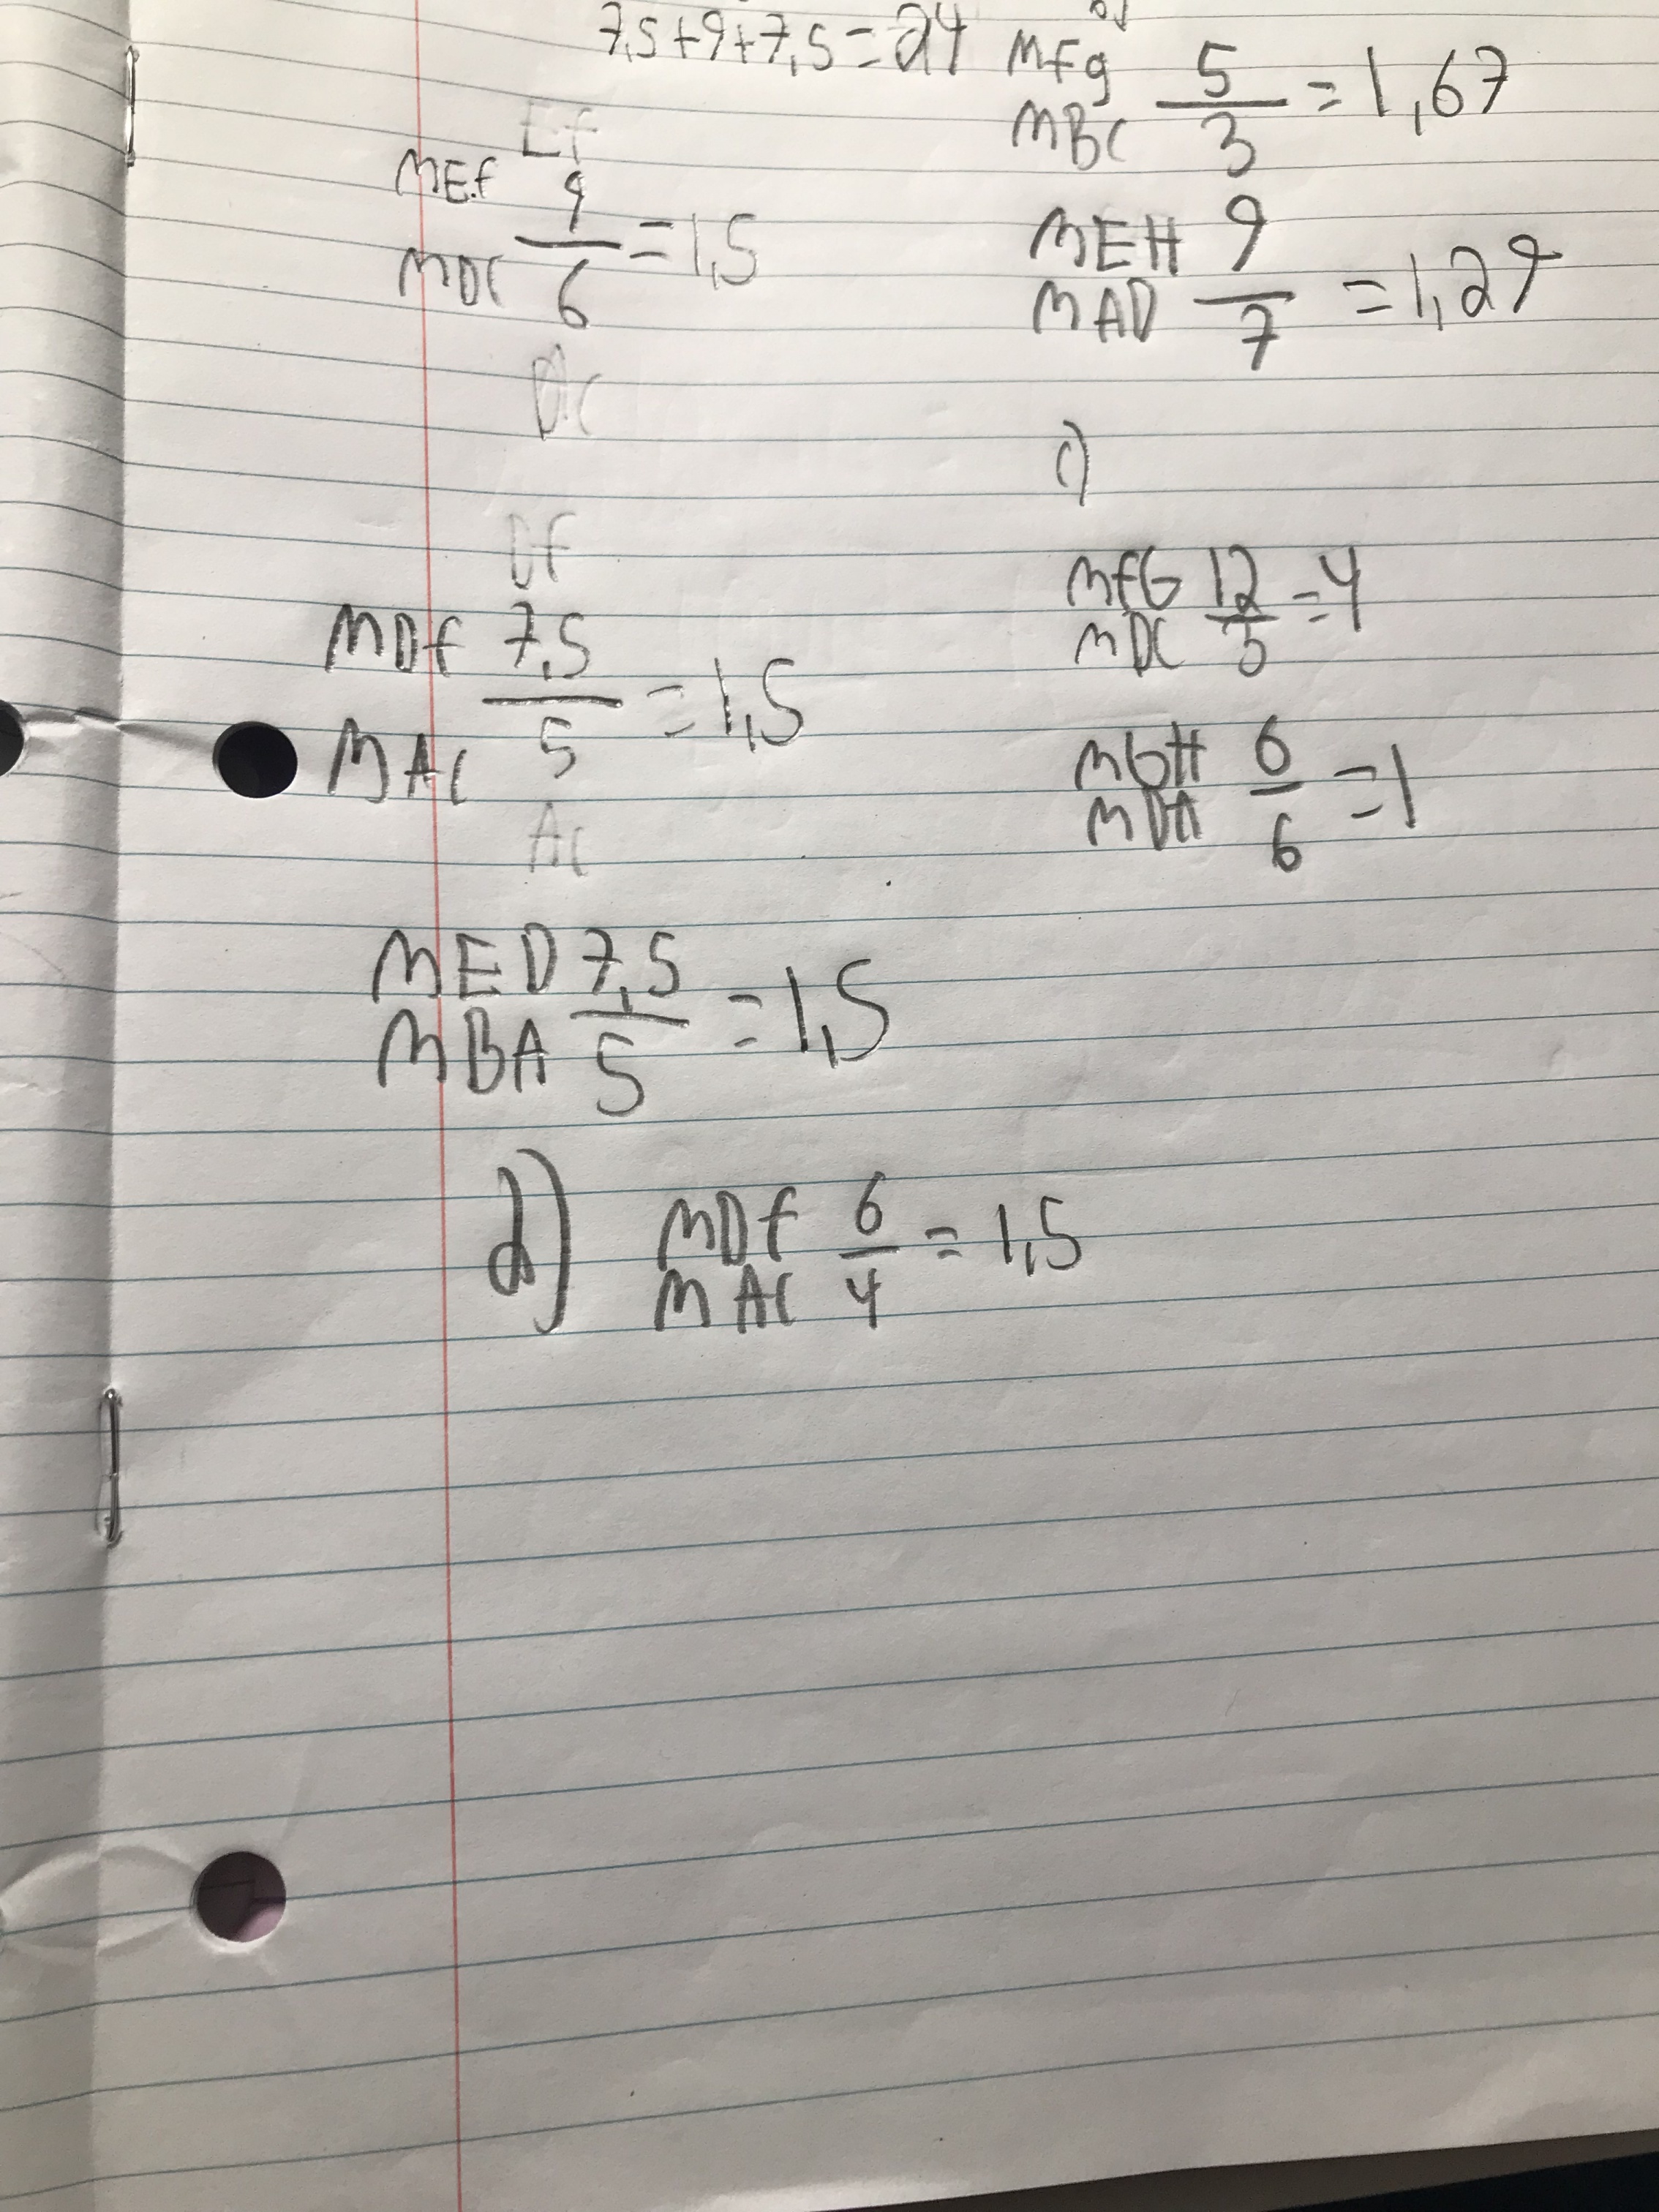 7,5+9+7,5=24
Ef
MEf 9
MDC 6 =1,5
DC
Df
MDf 7,5
MAC 5 =1,5
AC
MED 7,5
MBA 5 =1,5
d) MDf 6
MAC 4 = 1,5
Mfg 5
MBC 3 =1,67
MEH 9
MAD 7 =1,29
c)
MfG 12
MDC 3 =4
MGH 6
MDA 6 =1